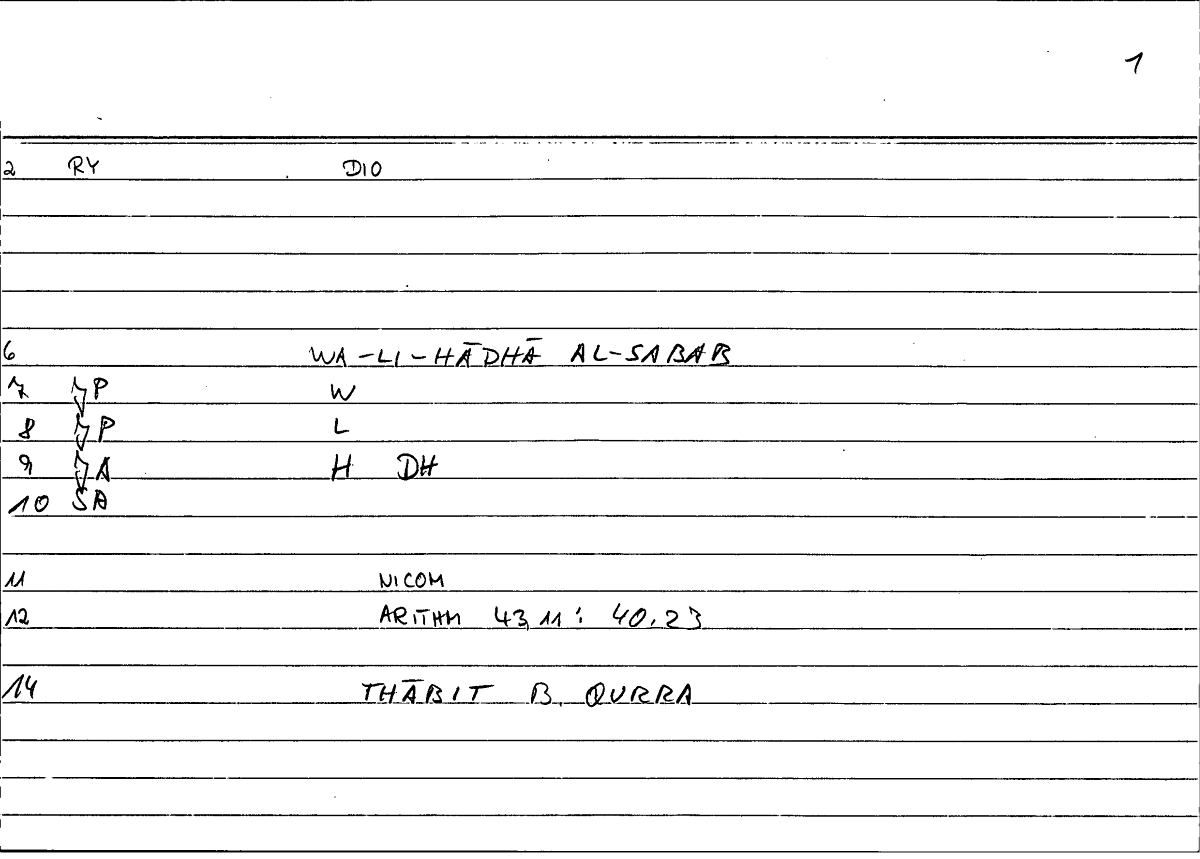 1
2 RY DIO
6 WA-LI-HĀDHĀ AL-SABAB
7 P W
8 P L
9 A H DH
10 SA
11 NICOM
12 ARITHM 43,11: 40.23
14 THĀBIT B. QURRA